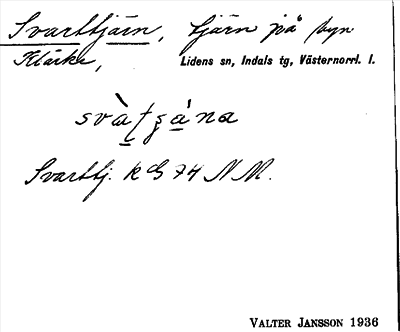 Svarttjärn, tjärn på byn
Klärke, Lidens sn, Indals tg, Västernorrl. l.
Svarttj. k G 74 N M.
VALTER JANSSON 1936